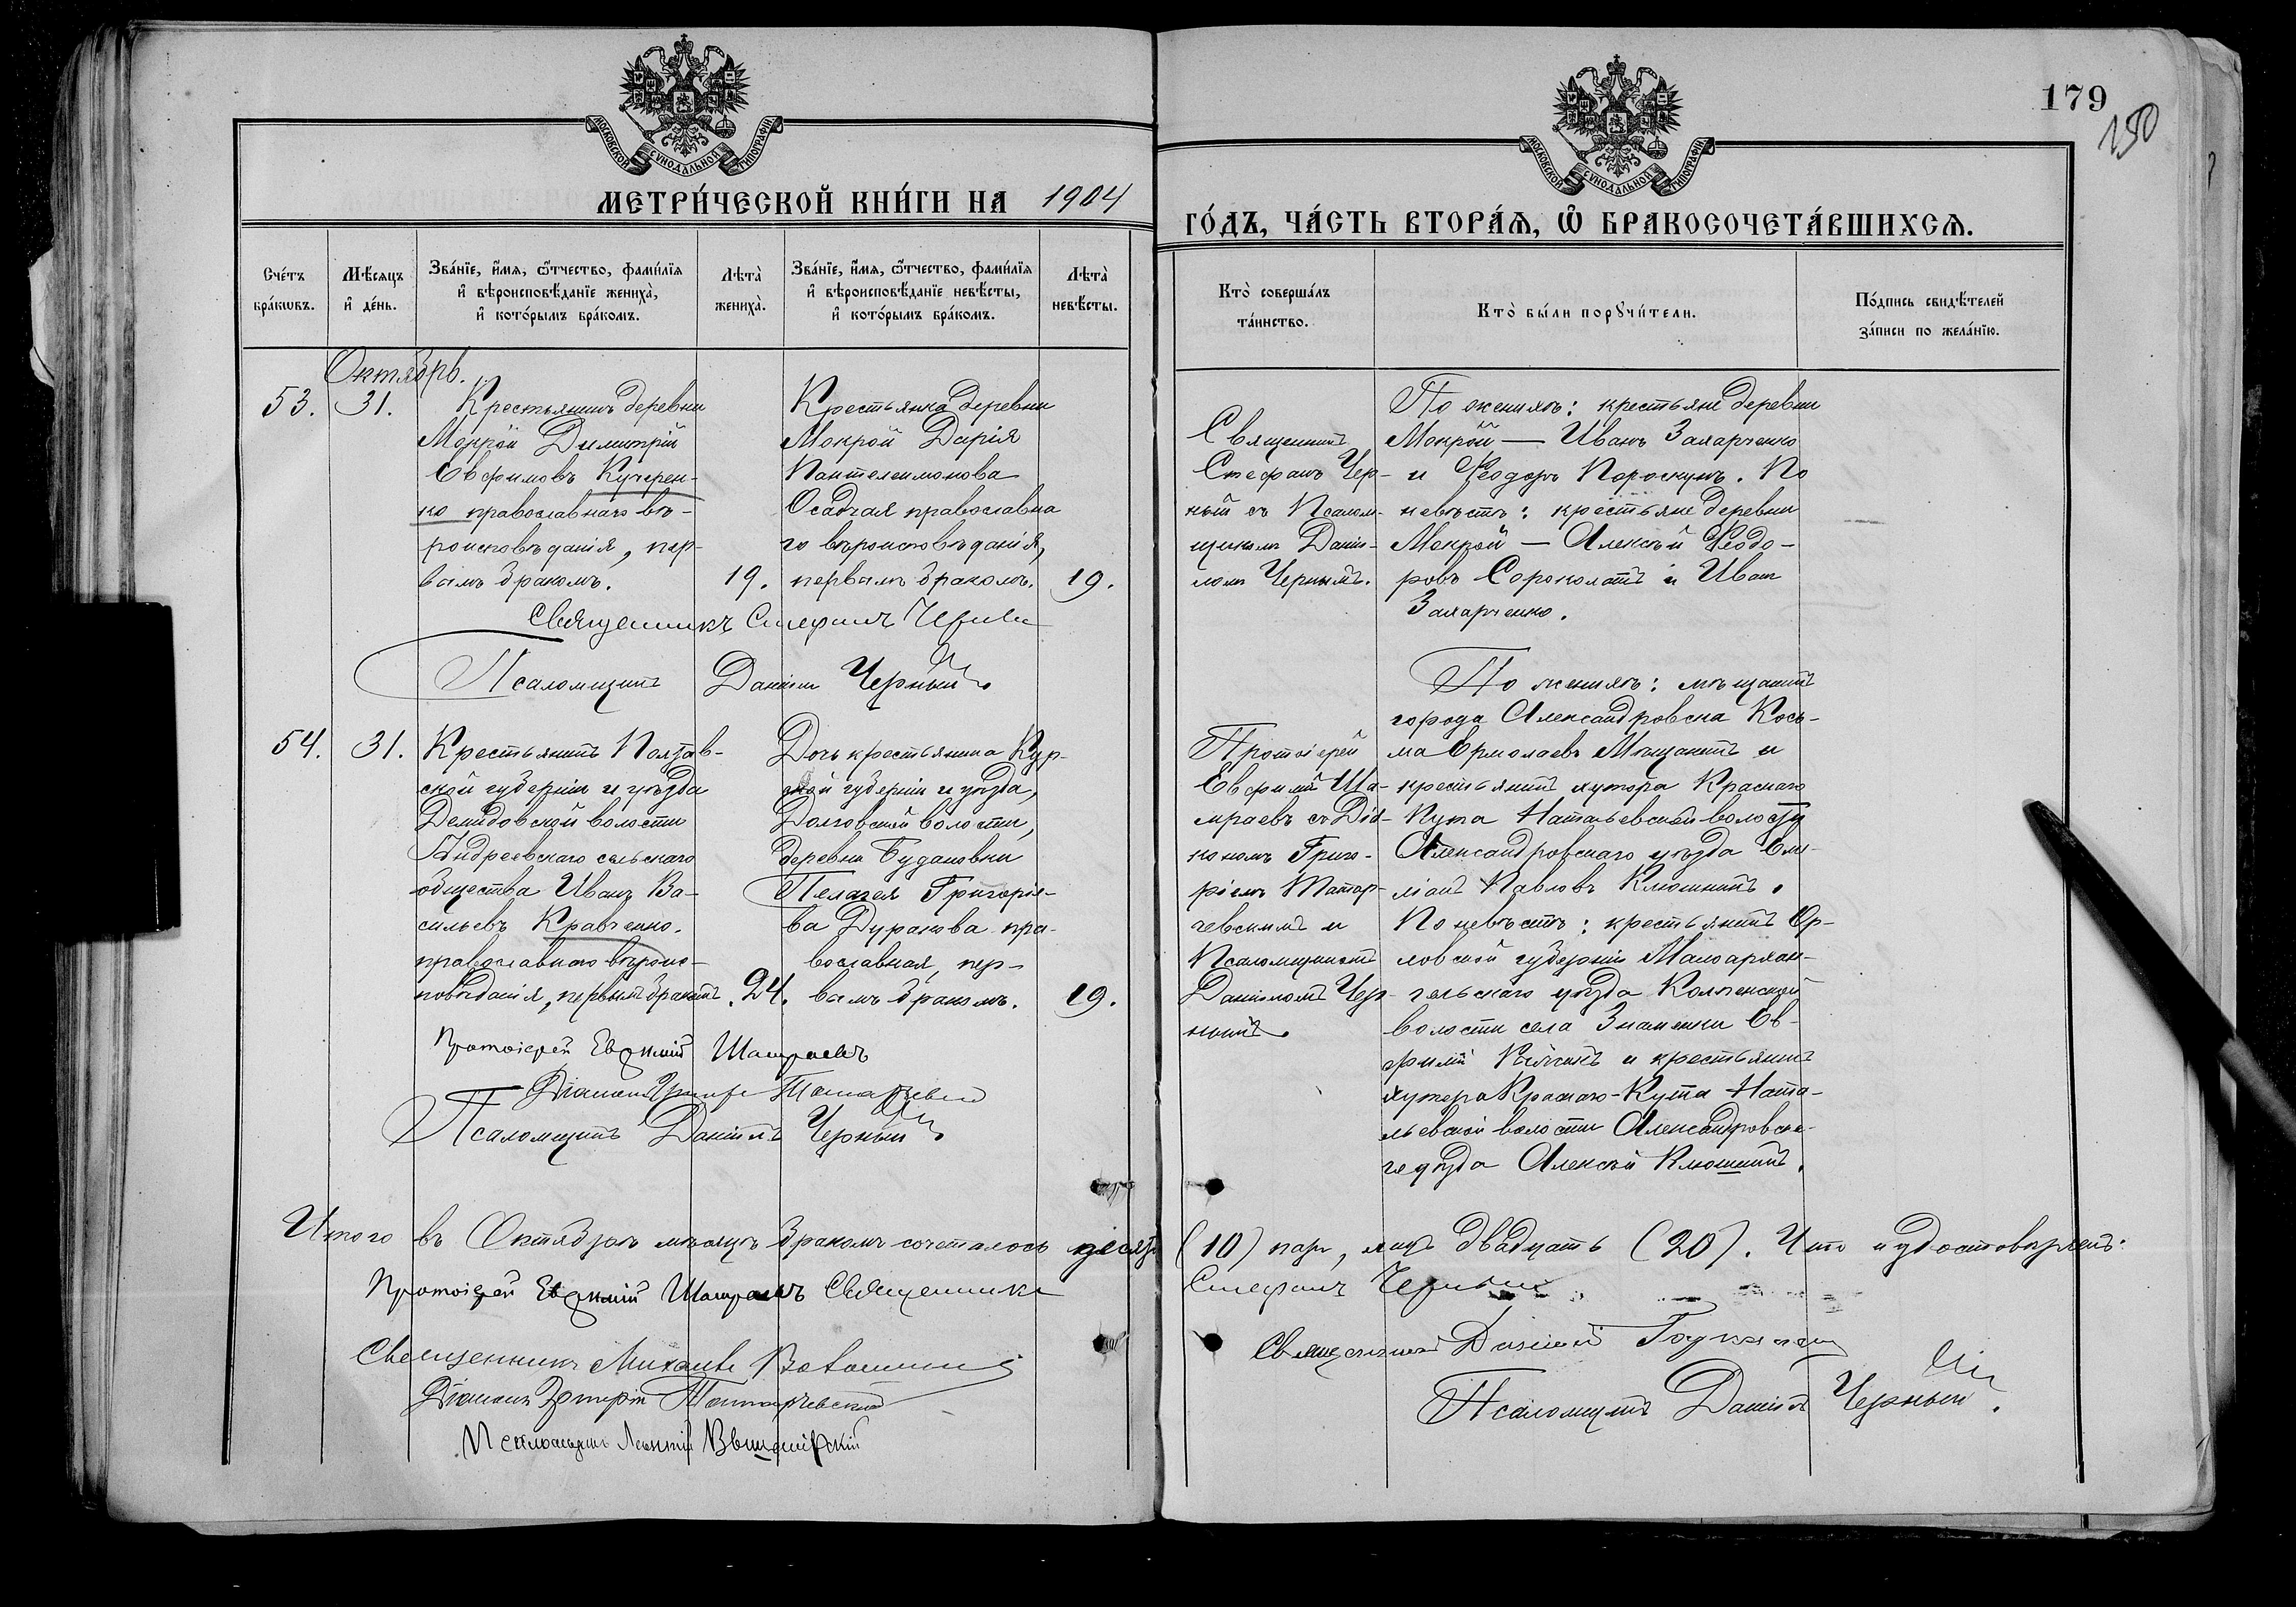 179
150
МОСКОВСКОЙ СѴНОДАЛЬНОЙ ТИПОГРАФІИ
МОСКОВСКОЙ СѴНОДАЛЬНОЙ ТИПОГРАФІИ
МЕТРИ́ЧЕСКОЙ КНИ́ГИ НА 1904
ГО́ДЪ, ЧА́СТЬ ВТОРА́Ѧ, Ѽ БРАКОСОЧЕТА́ВШИХСѦ.
Сче́тъ
бра́кѡвъ.
Мѣ́сяцъ
и҆ де́нь.
Зва́нїе, и҆́мѧ, ѻ҆́тчество, фами́лїѧ
и҆ вѣроисповѣ́данїе жениха̀,
и҆ кото́рымъ бра́комъ.
Лѣта̀
жениха̀.
Зва́нїе, и҆́мѧ, ѻ҆́тчество, фами́лїѧ
и҆ вѣроисповѣ́данїе невѣ́сты,
и҆ кото́рымъ бра́комъ.
Лѣта̀
невѣ́сты.
Кто̀ соверша́лъ
та́инство.
Кто̀ бы́ли порꙋчи́тели.
По́дпись свидѣ́телей
за́писи по жела́нїю.
Октябрь.
53.
31.
Крестьянинъ деревни
Мокрой Димитрій
Евфимовъ Кучерен-
ко православнаго вѣ-
роисповѣданія, пер-
вымъ бракомъ.
19.
Крестьянка деревни
Мокрой Дарія
Пантелеимонова
Осадчая православна
го вѣроисповѣданія,
первымъ бракомъ.
19.
Священникъ
Стефанъ Чер-
ный съ Псалом-
щикомъ Даніи-
ломъ Чернымъ.
По женихѣ: крестьяне деревни
Мокрой — Иванъ Захарченко
и Ѳеодоръ Пароскунъ. По
невѣстѣ: крестьяне деревни
Мокрой — Алексѣй Ѳеодо-
ровъ Сороколатъ и Иванъ
Захарченко.
Священникъ Стефанъ Черный
Псаломщикъ Даніилъ Черный
54.
31.
Крестьянинъ Полтав-
ской губерніи и уѣзда
Демидовской волости
Андреевскаго сельскаго
общества Иванъ Ва-
сильевъ Кравченко.
православнаго вѣроис-
повѣданія, первымъ бракомъ.
24.
Дочь крестьянина Кур-
ской губерніи и уѣзда,
Долговской волости,
деревни Будановки
Пелагея Григорье-
ва Дуракова пра-
вославная, пер-
вымъ бракомъ.
19.
Протоіерей
Евфимій Ша-
мраевъ съ Діа-
кономъ Григо-
ріемъ Татар-
чевскимъ и
Псаломщикомъ
Даніиломъ Чер-
нымъ.
По женихѣ: мѣщанинъ
города Александровска Кось-
ма Ермолаевъ Мащанинъ и
крестьянинъ хутора Краснаго
Кута Натальевской волости
Александровскаго уѣзда Еми-
ліанъ Павловъ Клюшникъ.
По невѣстѣ: крестьянинъ Ор-
ловской губерніи Малоархан-
гельскаго уѣзда Колпенской
волости села Знаменки Ев-
фимій и крестьянинъ
хутора Краснаго-Кута Ната-
льевской волости Александровска-
го уѣзда Алексѣй Клюшникъ.
Протоіерей Евфимій Шамраевъ
Діаконъ Григорій Татарчевскій
Псаломщикъ Даніилъ Черный
Итого въ Октябрѣ мѣсяцѣ бракомъ сочеталось десять (10) паръ, лицъ двадцать (20). Что и удостовѣряемъ:
Протоіерей Евфимій Шамраевъ Священникъ Стефанъ Черный
Священникъ Михаилъ
Священникъ
Діаконъ Григорій Татарчевскій
Псаломщикъ Даніилъ Черный
Псаломщикъ